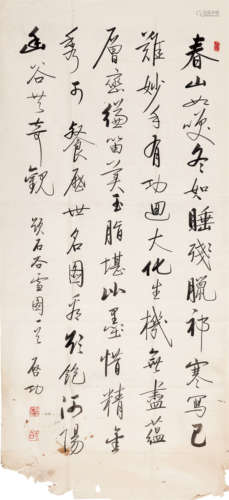 春山如笑冬如睡殘臘祁寒寫已
難妙手有功迴大化生機無盡蘊
層巒縑美玉脂堪比墨惜精金
秀可餐歷世名圖看欲飽河陽
幽谷奇觀 題石谷雪圖一首 啟功